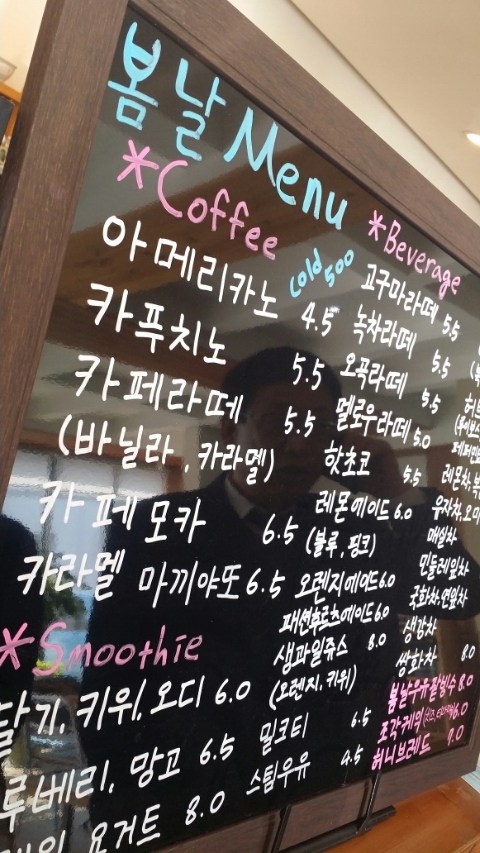 봄날 Menu
*Coffee
cold 500
아메리카노 4.5
카푸치노 5.5
카페라떼 5.5
(바닐라, 카라멜)
카페모카 6.5
카라멜 마끼야또 6.5
*Smoothie
딸기, 키위, 오디 6.0
루베리, 망고 6.5
요거트 8.0
*Beverage
고구마라떼 5.5
녹차라떼 5.5
오곡라떼 5.5
멜로우라떼 5.0
핫초코 5.5
레몬에이드 6.0
(블루, 핑크)
오렌지에이드 6.0
패션후르츠에이드 6.0
생과일쥬스 8.0
(오렌지, 키위)
밀크티 6.5
스팀우유 4.5
레몬차,
유자차, 오미
매실차
민들레잎차
국화차, 연잎차
생강차
쌍화차 8.0
봄날우유팥빙수 8.0
조각케익 6.0
허니브레드 9.0